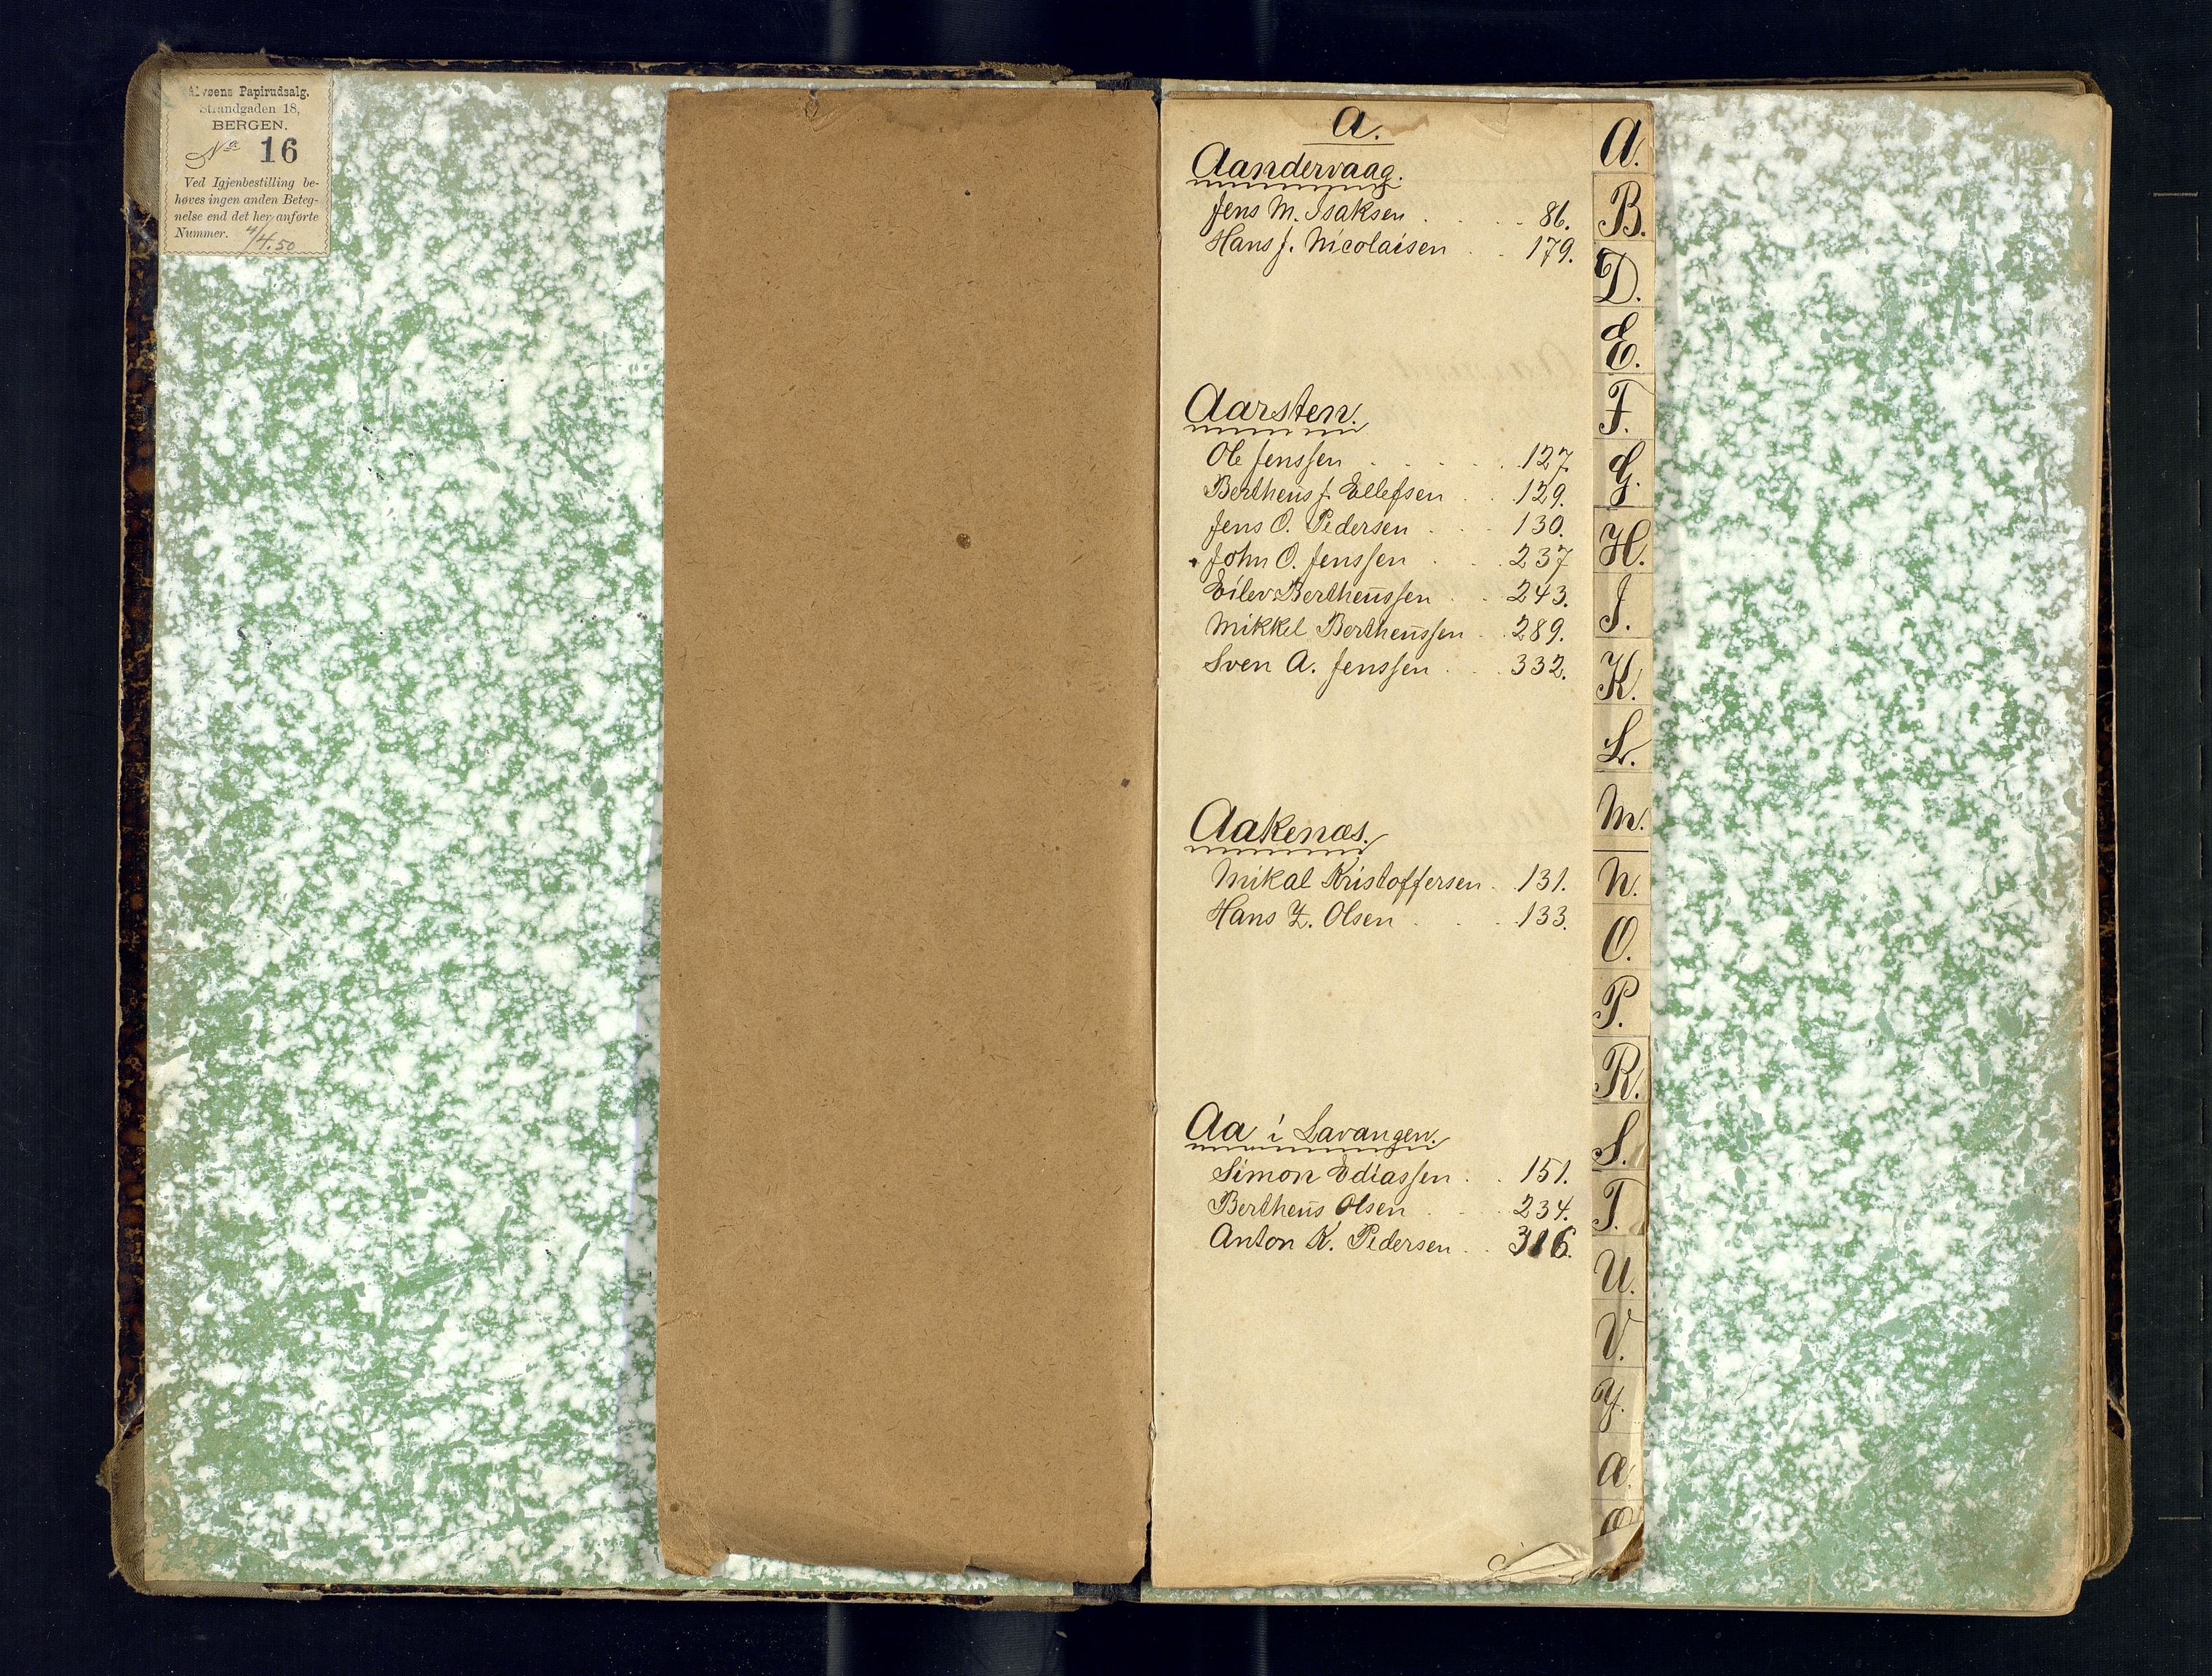 Alvøens Papirudsalg.
Strandgaden 18,
BERGEN.
No 16
Ved Igjenbestilling be-
høves ingen anden Beteg-
nelse end det her anførte
Nummer. 4/4.50
A.
Aandervaag.
Jens M. Isaksen . . . 86.
Hans J. Nicolaisen . . 179.
Aarsten.
Ole Jenssen . . . . . 127.
Bertheus J. Ellefsen . . 129.
Jens O. Pedersen . . . 130.
John O. Jenssen . . . 237
Eilev Bertheussen . . 243.
Mikkel Bertheussen . . 289.
Sven A. Jenssen . . . 332.
Aakenæs.
Mikal Kristoffersen . . 131.
Hans Z. Olsen . . . 133.
Aa i Lavangen.
Simon Ediassen . . 151.
Bertheus Olsen . . . 234.
Anton K. Pedersen . . 316.
A.
B.
D.
E.
F.
G.
H.
J.
K.
L.
M.
N.
O.
P.
R.
S.
T.
U.
V.
Y.
Æ.
Ø